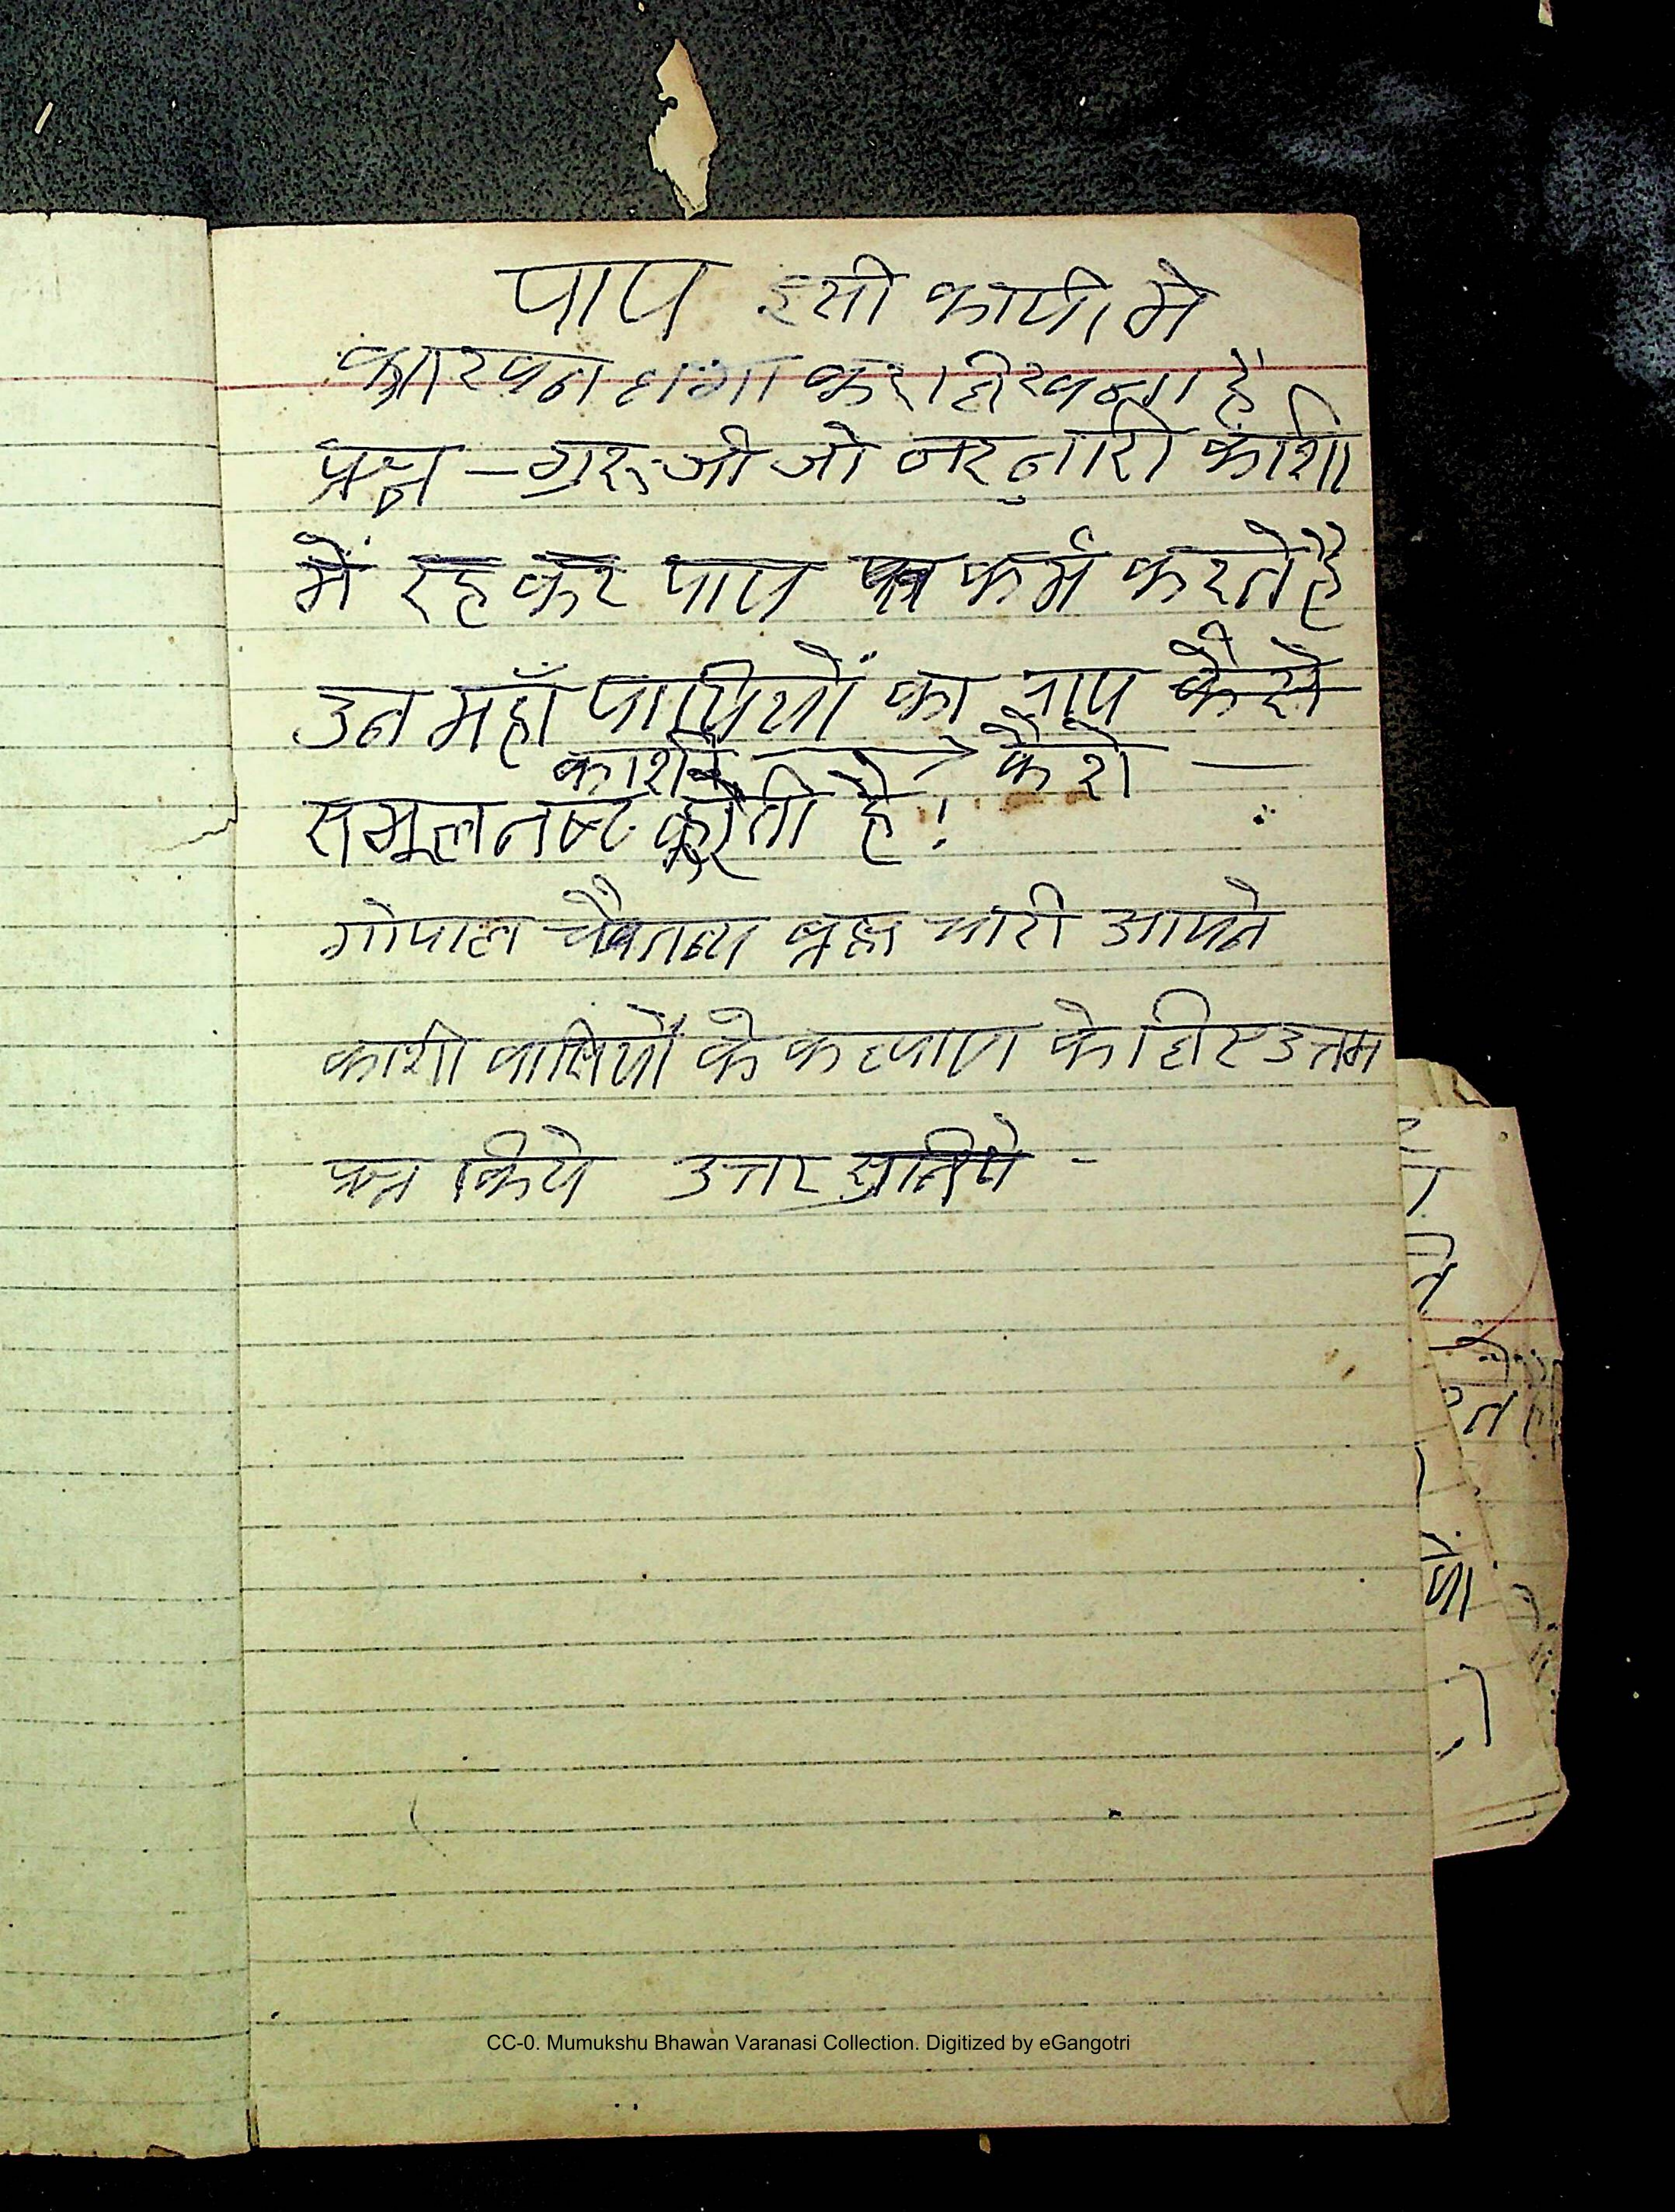 पाप इसी कापी मे
कारवन लगा कर लिखना है
प्रश्न – गुरुजी जो नर नारी काशी
में रह कर पाप कर्म करते है
उन महाँ पापियों का पाप कैसे
काशी कैसे —
समूल नष्ट करती है !
गोपाल चैतन्य ब्रह्म चारी आपने
काशी वासियों के कल्याण के लिए उत्तम
प्रश्न किये उत्तर सुनिये -
CC-0. Mumukshu Bhawan Varanasi Collection. Digitized by eGangotri